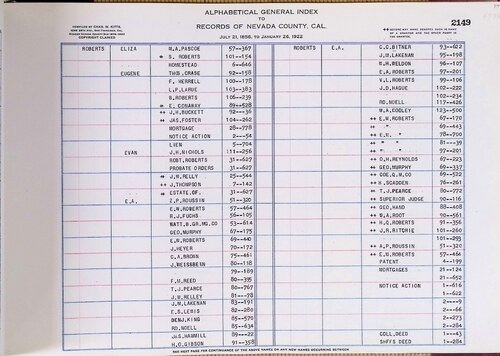 ALPHABETICAL GENERAL INDEX
TO
RECORDS OF NEVADA COUNTY, CAL.
JULY 21, 1856, TO JANUARY 26, 1922
2149
COMPILED BY CHAS. W. KITTS,
COPYRIGHT CLAIMED
ROBERTS ELIZA W.A. PASCOE 57—367 ROBERTS E.A. C.C. BITNER 93—622
S. ROBERTS 101—154 J.M. LAKENAN 95—198
HOMESTEAD 6—646 R.W. BELDON 96—107
EUGENE THIS. CRASE 92—158 E.A. ROBERTS 97—201
F. HERRELL 100—178 V.L. ROBERTS 99—106
L.P. LARUE 103—383 J.D. HAGUE 102—222
B. ROBERTS 106—239 102—234
E. CONAWAY 89—528 RD. NOELL 117—426
J.H. BUCKETT 92—36 M.A. COOLEY 123—500
JAS. FOSTER 104—262 E.W. ROBERTS 67—170
MORTGAGE 28—778 " 89—443
NOTICE ACTION 2—54 E.W. " 78—700
LIEN 5—704 " " 81—39
EVAN J.H. NICHOLS 111—256 " " 97—201
ROBT. ROBERTS 31—627 O.H. REYNOLDS 67—223
PROBATE ORDERS 31—627 GEO. MURPHY 69—337
J.W. RELLY 25—544 COE. Q.M. CO 69—522
J. THOMPSON 7—142 H. SCADDEN 76—261
ESTATE OF. 31—627 T.J. PEARSE 80—772
E.A. Z.P. ROUSSIN 51—320 SUPERIOR JUDGE 90—116
E.W. ROBERTS 57—464 GEO. HAND 88—408
B.J. FUCHS 56—105 B.A. ROOT 90—561
MATT. B. GR. MG. CO 53—614 H.C. ROBERTS 91—356
GEO. MURPHY 67—175 J.R. RITCHIE 101—260
E.W. ROBERTS 69—440 101—293
J. HEYER 70—172 A.P. ROUSSIN 51—320
C.A. BROWN 75—461 E.W. ROBERTS 57—464
J. WEISSBEIN 80—118 PATENT 4—199
79—189 MORTGAGES 21—124
F.H. REED 80—395 21—652
T.J. PEARSE 80—767 NOTICE ACTION 1—616
J.W. KELLEY 81—78 1—622
J.M. LAKENAN 83—191 2—9
E.S. LEWIS 82—280 2—66
BENJ. KING 85—570 2—273
RD. NOELL 85—634 2—284
JAS. HAMMILL 89—22 COLL. DEED 1—43
H.O. GIBSON 91—358 SHFFS DEED 1—284
SEE NEXT PAGE FOR CONTINUANCE OF THE ABOVE NAMES OR ANY NEW NAMES OCCURRING BETWEEN